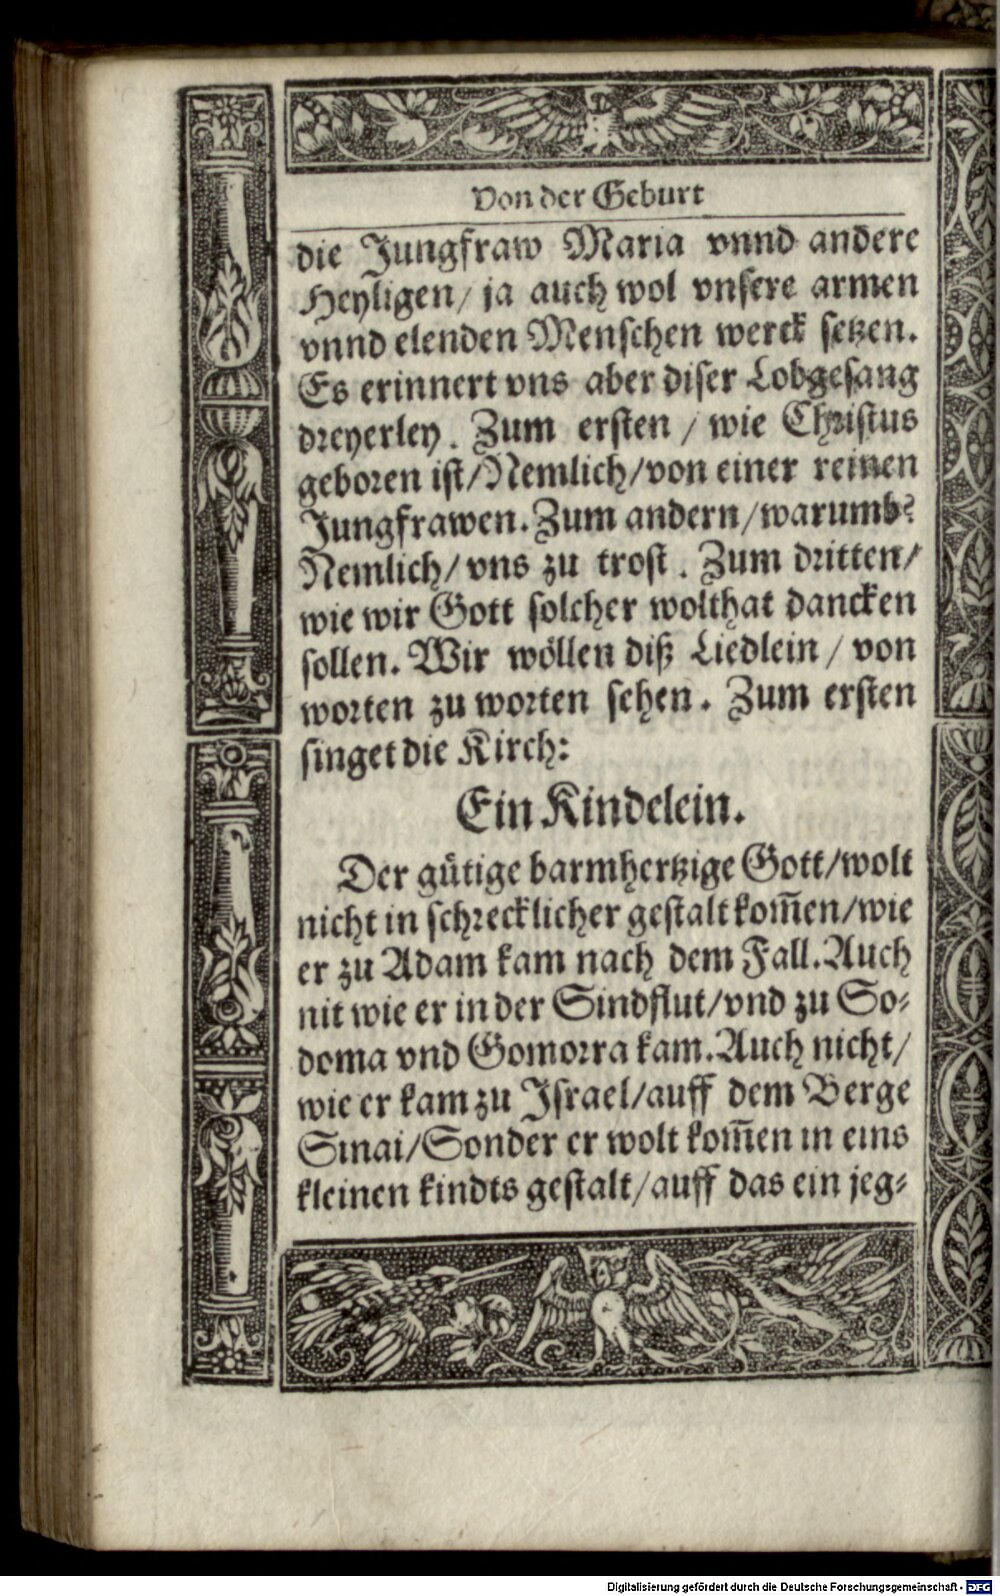 Von der Geburt
die Jungfraw Maria vnnd andere
Heyligen/ ja auch wol vnsere armen
vnnd elenden Menschen werck setzen.
Es erinnert vns aber diser Lobgesang
dreyerley. Zum ersten / wie Christus
geboren ist/Nemlich/von einer reinen
Jungfrawen. Zum andern/warumb?
Nemlich/ vns zu trost. Zum dritten/
wie wir Gott solcher wolthat dancken
sollen. Wir wöllen diß Liedlein / von
worten zu worten sehen. Zum ersten
singet die Kirch:
Ein Kindelein.
Der gütige barmhertzige Gott/wolt
nicht in schrecklicher gestalt kom̃en/wie
er zu Adam kam nach dem Fall. Auch
nit wie er in der Sindflut/vnd zu So⸗
doma vnd Gomorra kam. Auch nicht/
wie er kam zu Israel/auff dem Berge
Sinai/Sonder er wolt kom̃en in eins
kleinen kindts gestalt/auff das ein jeg⸗
Digitalisierung gefördert durch die Deutsche Forschungsgemeinschaft - DFG